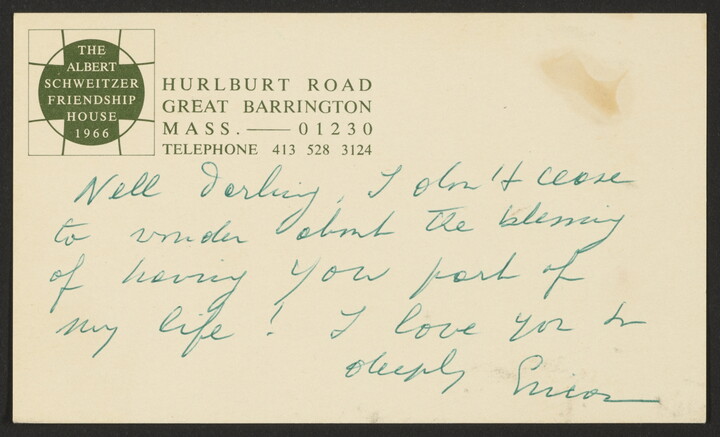 THE
ALBERT
SCHWEITZER
FRIENDSHIP
HOUSE
1966
HURLBURT ROAD
GREAT BARRINGTON
MASS. — 01230
TELEPHONE 413 528 3124
Nell Darling, I don't cease
to wonder about the blessing
of having You part of
my life! I love you so
deeply Erica